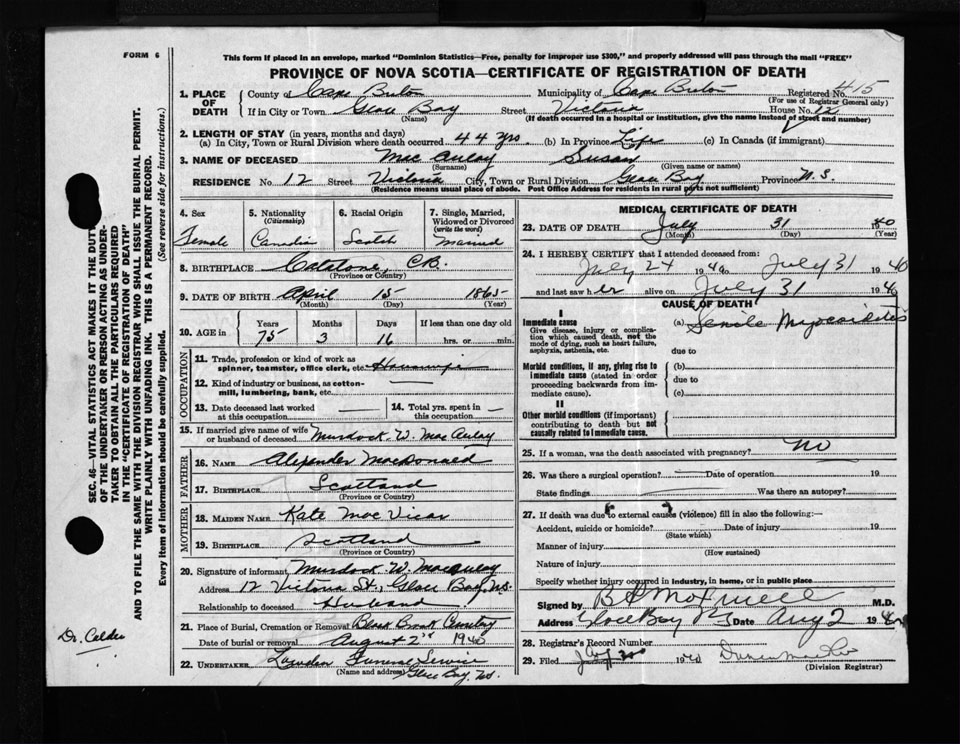 FORM 6
This form if placed in an envelope, marked "Dominion Statistics—Free, penalty for improper use $300," and properly addressed will pass through the mail "FREE"
PROVINCE OF NOVA SCOTIA—CERTIFICATE OF REGISTRATION OF DEATH
1. PLACE OF DEATH
County of Cape Breton Municipality of Cape Breton Registered No. 415
(For use of Registrar General only)
If in City or Town Glace Bay Street Victoria House No. 12
(Name) (If death occurred in a hospital or institution, give the name instead of street and number)
2. LENGTH OF STAY (in years, months and days)
(a) In City, Town or Rural Division where death occurred 44 yrs. (b) In Province Life (c) In Canada (if immigrant)
3. NAME OF DECEASED Mac Aulay Susan
(Surname) (Given name or names)
RESIDENCE No. 12 Street Victoria City, Town or Rural Division Glace Bay Province N.S.
(Residence means usual place of abode. Post Office Address for residents in rural parts not sufficient)
4. Sex
Female
5. Nationality
(Citizenship)
Canadian
6. Racial Origin
Scotch
7. Single, Married, Widowed or Divorced
(write the word)
Married
8. BIRTHPLACE Catalone, C.B.
(Province or Country)
9. DATE OF BIRTH April 15 1865
(Month) (Day) (Year)
10. AGE in
Years Months Days If less than one day old
75 3 16 hrs. or min.
OCCUPATION
11. Trade, profession or kind of work as
spinner, teamster, office clerk, etc. Housewife
12. Kind of industry or business, as cotton-
mill, lumbering, bank, etc.
13. Date deceased last worked
at this occupation
14. Total yrs. spent in
this occupation
15. If married give name of wife
or husband of deceased Murdock W. MacAulay
FATHER
16. NAME Alexander MacDonald
17. BIRTHPLACE Scotland
(Province or Country)
MOTHER
18. MAIDEN NAME Kate Mac Vicar
19. BIRTHPLACE Scotland
(Province or Country)
20. Signature of informant Murdock W. MacAulay
Address 12 Victoria St., Glace Bay, N.S.
Relationship to deceased Husband
21. Place of Burial, Cremation or Removal Black Brook Cemetry
Date of burial or removal August 2nd 1940
22. UNDERTAKER Lowden Funeral Service
(Name and address) Glace Bay, N.S.
MEDICAL CERTIFICATE OF DEATH
23. DATE OF DEATH July 31 1940
(Month) (Day) (Year)
24. I HEREBY CERTIFY that I attended deceased from:
July 24 1940 to July 31 1940
and last saw her alive on July 31 1940
CAUSE OF DEATH
I
Immediate cause
Give disease, injury or complication which caused death, not the mode of dying, such as heart failure, asphyxia, asthenia, etc.
(a) Senile Myocarditis
due to
Morbid conditions, if any, giving rise to immediate cause (stated in order proceeding backwards from immediate cause).
(b)
due to
(c)
II
Other morbid conditions (if important) contributing to death but not causally related to immediate cause.
25. If a woman, was the death associated with pregnancy? No
26. Was there a surgical operation? Date of operation 19
State findings Was there an autopsy?
27. If death was due to external causes (violence) fill in also the following:—
Accident, suicide or homicide? Date of injury 19
(State which)
Manner of injury
(How sustained)
Nature of injury
Specify whether injury occurred in industry, in home, or in public place
Signed by M.D.
Address Glace Bay N.S. Date Aug 2 1940
28. Registrar's Record Number
29. Filed 1940
(Division Registrar)
SEC. 46—VITAL STATISTICS ACT MAKES IT THE DUTY
OF THE UNDERTAKER OR PERSON ACTING AS UNDER-
TAKER TO OBTAIN ALL THE PARTICULARS REQUIRED
IN THE "CERTIFICATE OF REGISTRATION OF DEATH"
AND TO FILE THE SAME WITH THE DIVISION REGISTRAR WHO SHALL ISSUE THE BURIAL PERMIT.
WRITE PLAINLY WITH UNFADING INK. THIS IS A PERMANENT RECORD.
Every item of information should be carefully supplied. (See reverse side for instructions.)
Dr. Calder